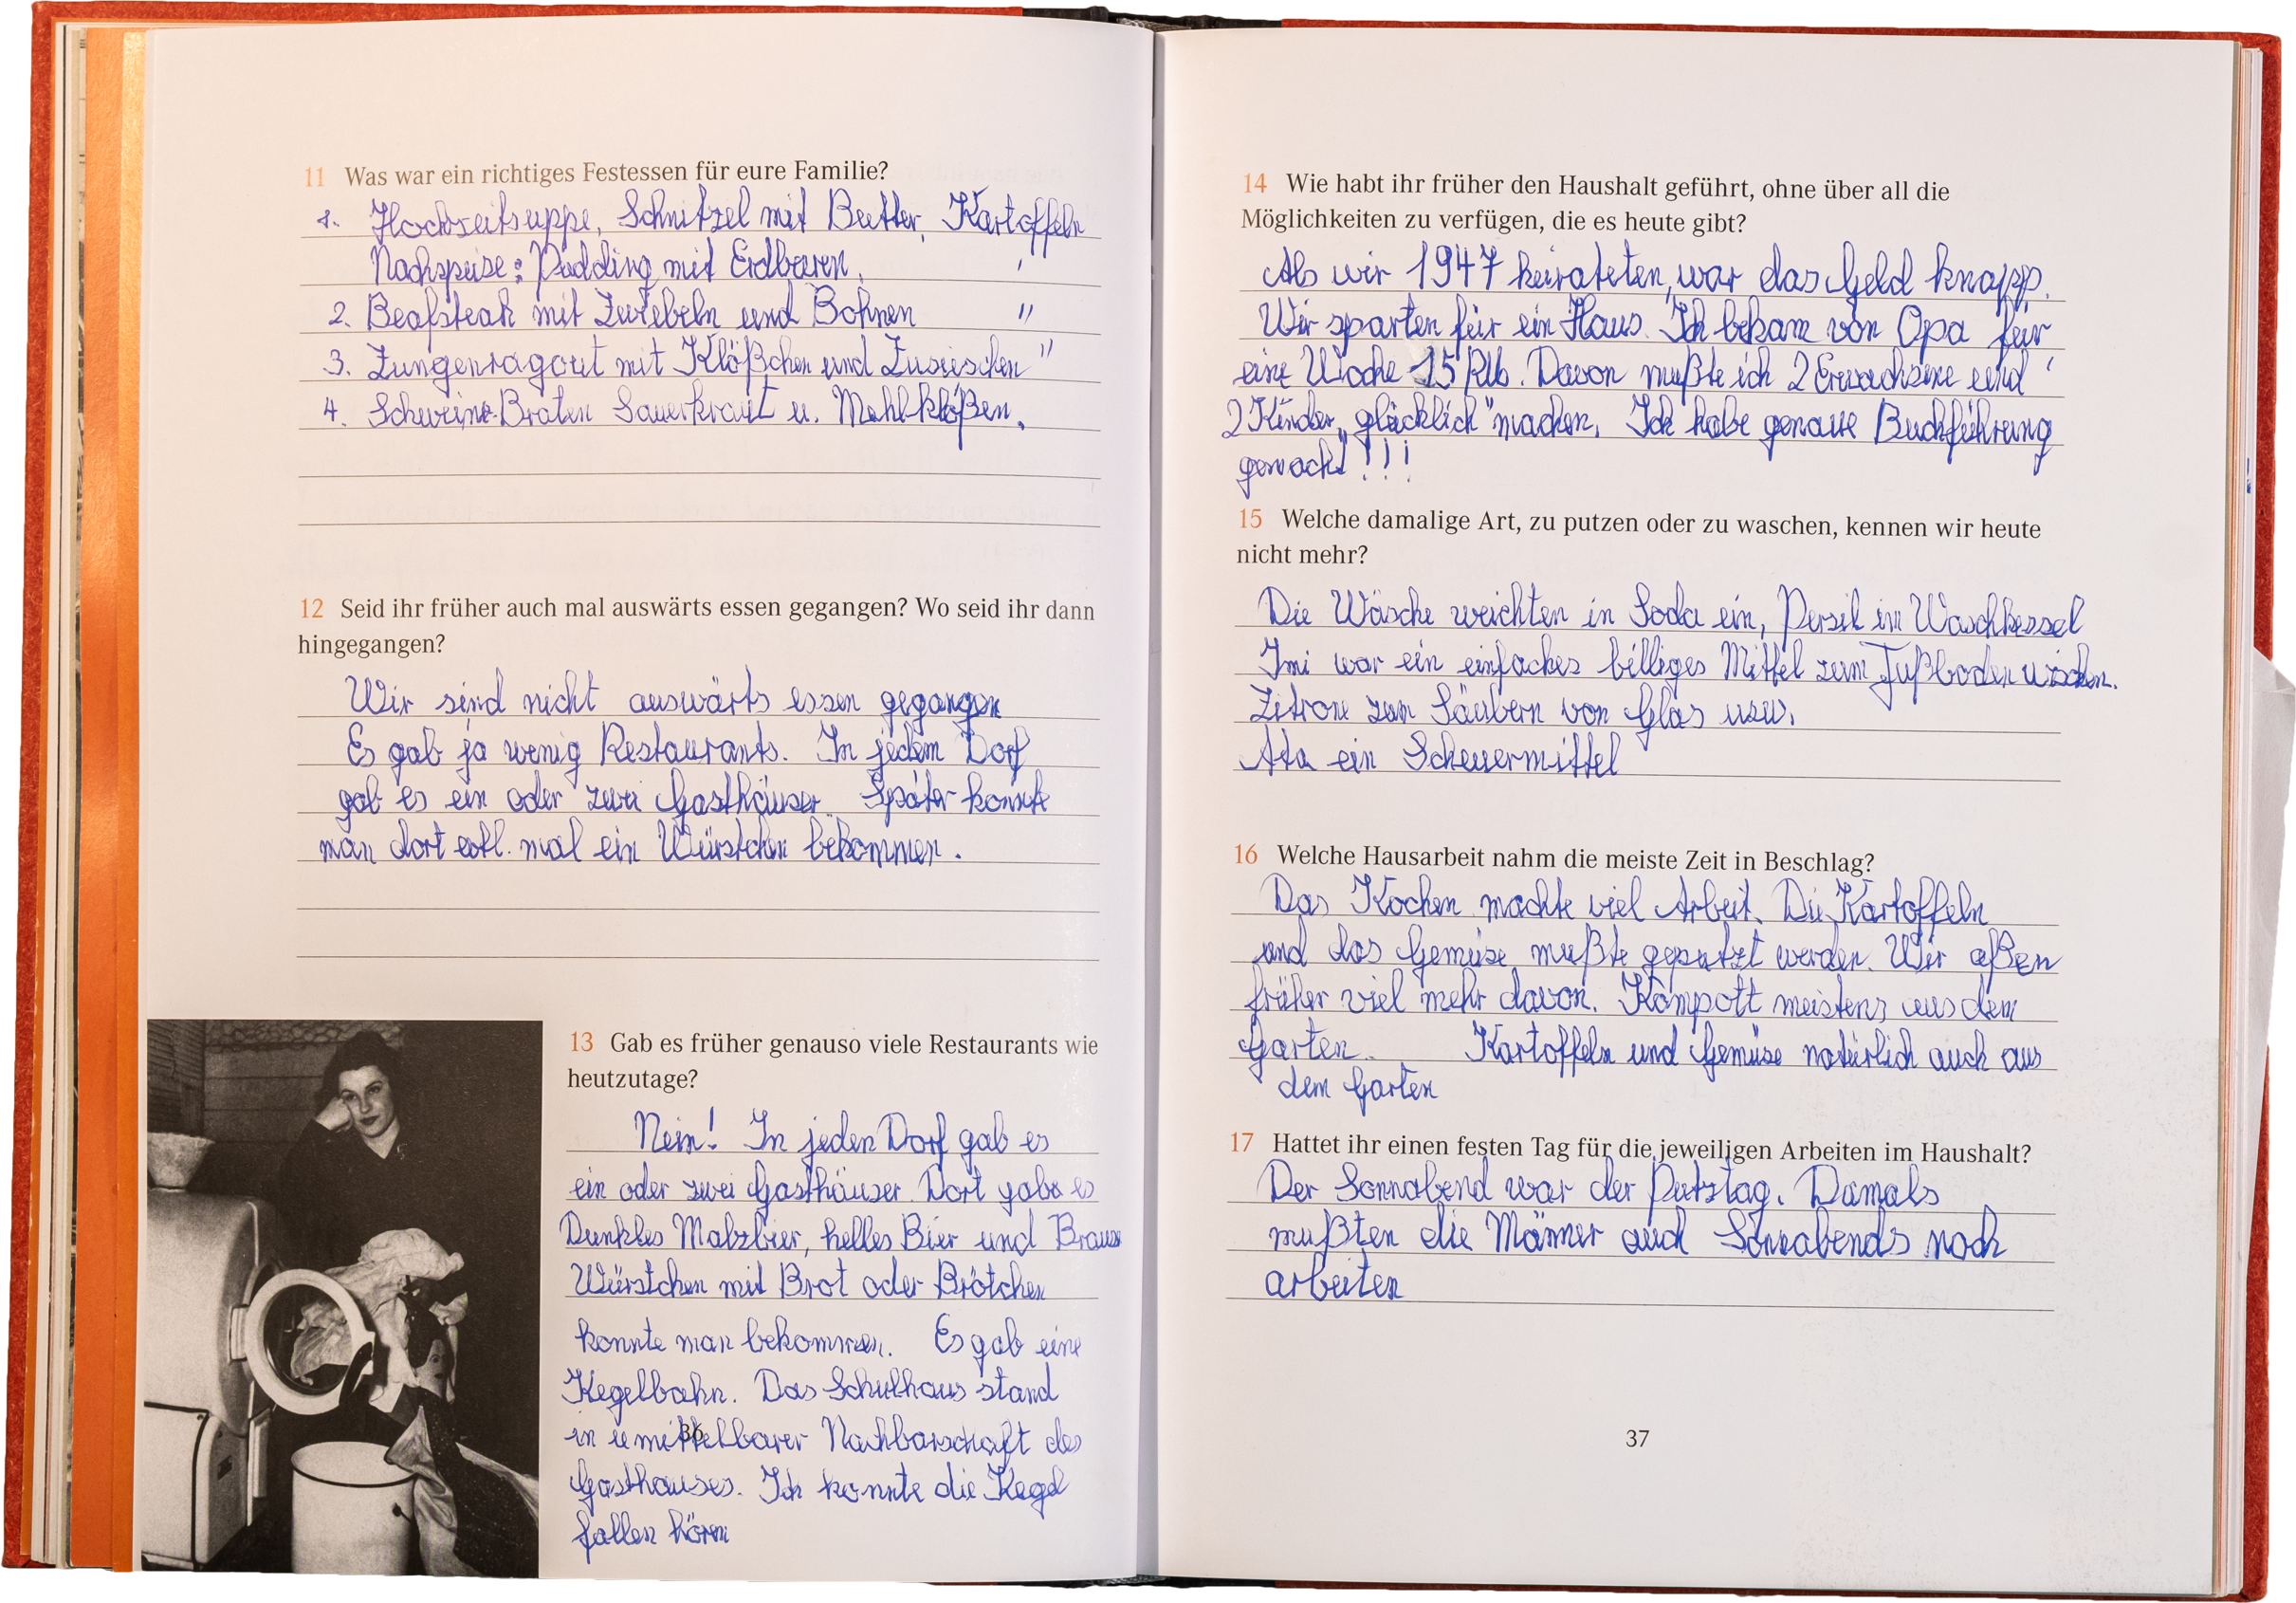 11 Was war ein richtiges Festessen für eure Familie?
1. Hochzeitsuppe, Schnitzel mit Butter, Kartoffeln
Nachspeise: Pudding mit Erdbeeren,
2. Beafsteak mit Zwiebeln und Bohnen "
3. Zungenragout mit Klößchen und "
4. Schweine-Braten Sauerkraut u. Mehlklößen.
12 Seid ihr früher auch mal auswärts essen gegangen? Wo seid ihr dann
hingegangen?
Wir sind nicht auswärts essen gegangen
Es gab ja wenig Restaurants. In jedem Dorf
gab es ein oder zwei Gasthäuser. Später konnte
man dort evtl. mal ein Würstchen bekommen.
13 Gab es früher genauso viele Restaurants wie
heutzutage?
Nein! In jeden Dorf gab es
ein oder zwei Gasthäuser. Dort gabe es
Dunkles Malzbier, helles Bier und Brause
Würstchen mit Brot oder Brötchen
konnte man bekommen. Es gab eine
Kegelbahn. Das Schulhaus stand
in umittelbarer Nachbarschaft des
Gasthauses. Ich konnte die Kegel
fallen hören
36
14 Wie habt ihr früher den Haushalt geführt, ohne über all die
Möglichkeiten zu verfügen, die es heute gibt?
Als wir 1947 heirateten, war das Geld knapp.
Wir sparten für ein Haus. Ich bekam von Opa für
eine Woche 15 RM. Davon mußte ich 2 Erwachsene und
2 Kinder „glücklich" machen. Ich habe genaue Buchführung
gemacht!!!
15 Welche damalige Art, zu putzen oder zu waschen, kennen wir heute
nicht mehr?
Die Wäsche weichten in Soda ein, Persil im Waschkessel
Imi war ein einfaches billiges Mittel zum Fußboden wischen.
Zitrone zum Säubern von Glas usw.
Ata ein Scheuermittel
16 Welche Hausarbeit nahm die meiste Zeit in Beschlag?
Das Kochen machte viel Arbeit. Die Kartoffeln
und das Gemüse mußte geputzt werden. Wir aßen
früher viel mehr davon. Kompott meistens aus dem
Garten. Kartoffeln und Gemüse natürlich auch aus
dem Garten
17 Hattet ihr einen festen Tag für die jeweiligen Arbeiten im Haushalt?
Der Sonnabend war der Putztag. Damals
mußten die Männer auch Sonnabends noch
arbeiten
37